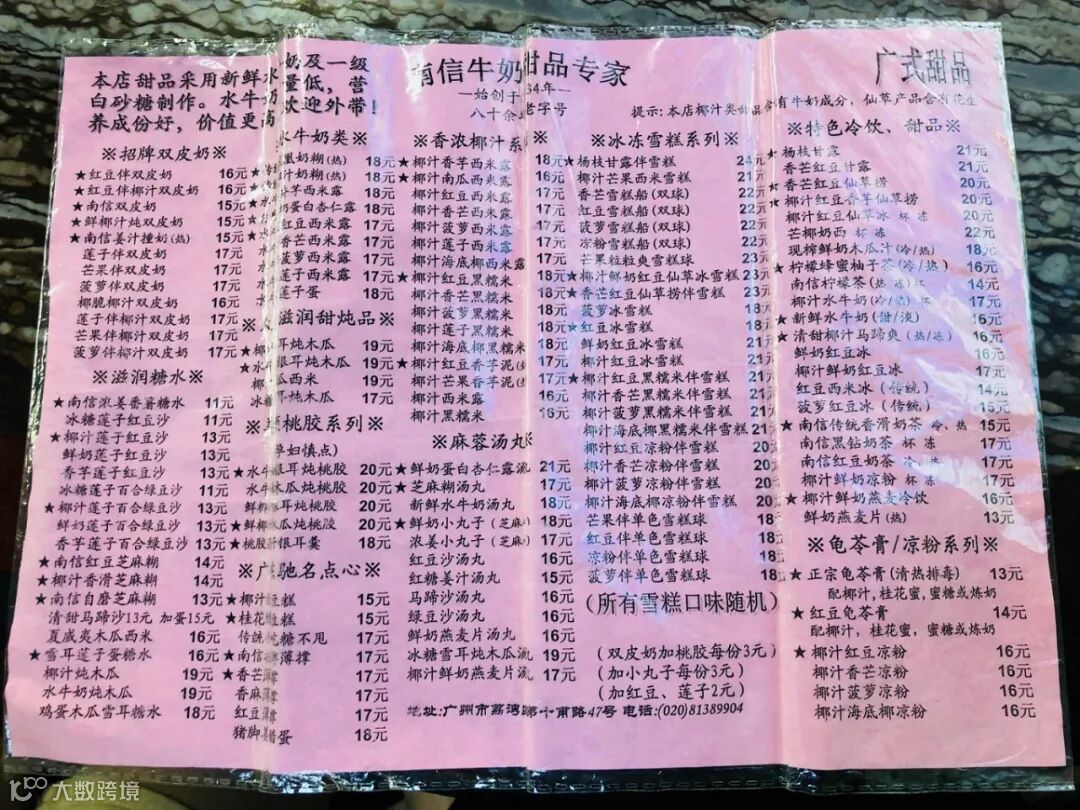 本店甜品采用新鲜水
奶及一级
白砂糖制作。水牛奶
量低,营
养成份好,价值更高
欢迎外带!
南信牛奶甜品专家
—始创于
34年—
八十余
老字号
广式甜品
提示:本店椰汁类甜品含有牛奶成分,仙草产品含有花生
※招牌双皮奶※
★红豆伴双皮奶 16元
★红豆伴椰汁双皮奶 16元
★南信双皮奶 15元
★鲜椰汁炖双皮奶 15元
★南信姜汁撞奶(热) 15元
莲子伴双皮奶 17元
芒果伴双皮奶 17元
菠萝伴双皮奶 17元
椰脆椰汁双皮奶 16元
莲子伴椰汁双皮奶 17元
芒果伴椰汁双皮奶 17元
菠萝伴椰汁双皮奶 17元
※滋润糖水※
★南信浓姜番薯糖水 11元
冰糖莲子红豆沙 13元
★椰汁莲子红豆沙 13元
鲜奶莲子红豆沙 13元
香芋莲子红豆沙 13元
冰糖莲子百合绿豆沙 11元
★椰汁莲子百合绿豆沙 13元
鲜奶莲子百合绿豆沙 13元
香芋莲子百合绿豆沙 13元
★南信红豆芝麻糊 14元
★椰汁香滑芝麻糊 14元
★南信自磨芝麻糊 13元
清甜马蹄沙13元 加蛋15元
夏威夷木瓜西米 16元
★雪耳莲子蛋糖水 16元
椰汁炖木瓜 19元
水牛奶炖木瓜 19元
鸡蛋木瓜雪耳糖水 18元
水牛奶类※
凰奶糊(热) 18元
汁奶糊(热) 18元
香芋西米露 18元
奶蛋白杏仁露 18元
红豆西米露 18元
香芒西米露 18元
菠萝西米露 18元
莲子西米露 18元
莲子蛋 18元
滋润甜炖品※
耳炖木瓜 19元
银耳炖木瓜 19元
瓜西米 19元
炖木瓜 17元
桃胶系列※
孕妇慎点)
★水牛银耳炖桃胶 20元
水牛木瓜炖桃胶 20元
鲜椰耳炖桃胶 20元
★鲜椰瓜炖桃胶 20元
★桃胶银耳羹 18元
驰名点心※
★椰汁糕 15元
★桂花糕 15元
传统糖不甩 17元
★南信薄撑 17元
★香芒 17元
香麻 17元
红豆 17元
猪脚姜蛋 18元
※香浓椰汁系
★椰汁香芋西米露 18元
★椰汁南瓜西米露 16元
椰汁红豆西米露 16元
椰汁香芒西米露 17元
椰汁菠萝西米露 17元
椰汁莲子西米露 17元
椰汁海底椰西米露 17元
★椰汁红豆黑糯米 18元
椰汁香芒黑糯米 18元
椰汁菠萝黑糯米 18元
椰汁莲子黑糯米 18元
椰汁海底椰黑糯米 18元
★椰汁红豆香芋泥 17元
椰汁芒果香芋泥 17元
椰汁西米露 16元
椰汁黑糯米 16元
※麻蓉汤丸※
★鲜奶蛋白杏仁露汤丸 21元
★芝麻糊汤丸 17元
新鲜水牛奶汤丸 18元
★鲜奶小丸子(芝麻) 18元
浓姜小丸子(芝麻) 17元
红豆沙汤丸 17元
红糖姜汁汤丸 17元
马蹄沙汤丸 17元
绿豆沙汤丸 17元
鲜奶燕麦片汤丸 17元
冰糖雪耳炖木瓜汤丸 19元
椰汁鲜奶燕麦片汤丸 17元
※冰冻雪糕系列※
★杨枝甘露伴雪糕 24元
椰汁芒果西米雪糕 21元
香芒雪糕船(双球) 22元
红豆雪糕船(双球) 22元
菠萝雪糕船(双球) 22元
凉粉雪糕船(双球) 22元
芒果粒粒爽雪糕 23元
★椰汁鲜奶红豆仙草冰雪糕 23元
★香芒红豆仙草捞伴雪糕 23元
菠萝冰雪糕 21元
★红豆冰雪糕 21元
鲜奶红豆冰雪糕 21元
椰汁红豆冰雪糕 21元
★椰汁红豆黑糯米伴雪糕 21元
椰汁香芒黑糯米伴雪糕 21元
椰汁菠萝黑糯米伴雪糕 21元
椰汁海底椰黑糯米伴雪糕 21元
椰汁红豆凉粉伴雪糕 21元
椰汁香芒凉粉伴雪糕 21元
椰汁菠萝凉粉伴雪糕 21元
椰汁海底椰凉粉伴雪糕 21元
芒果伴单色雪糕球 18元
红豆伴单色雪糕球 18元
凉粉伴单色雪糕球 18元
菠萝伴单色雪糕球 18元
(所有雪糕口味随机)
(双皮奶加桃胶每份3元)
(加小丸子每份3元)
(加红豆、莲子2元)
※特色冷饮、甜品※
★杨枝甘露 21元
香芒红豆甘露 21元
★香芒红豆仙草捞 20元
★椰汁红豆香芋仙草捞 20元
椰汁红豆仙草冰 杯 冻 20元
芒椰奶西 杯 冻 22元
现榨鲜奶木瓜汁(冷/热) 18元
★柠檬蜂蜜柚子茶(冷/热) 16元
南信柠檬茶(热 冻)杯 14元
椰汁水牛奶(冷/热)杯 17元
★新鲜水牛奶(甜/淡) 16元
★清甜椰汁马蹄爽(热) 16元
鲜奶红豆冰 16元
椰汁鲜奶红豆冰 17元
红豆西米冰(传统) 14元
菠萝红豆冰(传统) 15元
★南信传统香滑奶茶 冷、热 15元
南信黑钻奶茶 杯 冻 17元
南信红豆奶茶 冷 热 16元
椰汁鲜奶凉粉 杯 冻 17元
★椰汁鲜奶燕麦冷饮 16元
鲜奶燕麦片(热) 13元
※龟苓膏/凉粉系列※
★正宗龟苓膏(清热排毒) 13元
配椰汁,桂花蜜,蜜糖或炼奶
★红豆龟苓膏 14元
配椰汁,桂花蜜,蜜糖或炼奶
★椰汁红豆凉粉 16元
椰汁香芒凉粉 16元
椰汁菠萝凉粉 16元
椰汁海底椰凉粉 16元
地址:广州市荔湾第十甫路47号 电话:(020)81389904
大数跨境